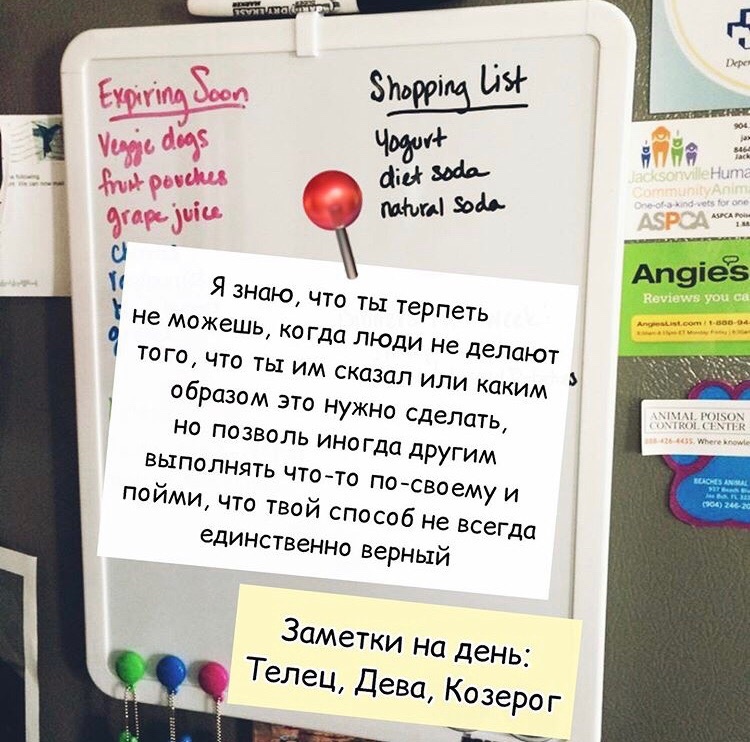 Expiring Soon
Veggie dogs
fruit pouches
grape juice
Shopping List
Yogurt
diet soda
natural soda
Я знаю, что ты терпеть
не можешь, когда люди не делают
того, что ты им сказал или каким
образом это нужно сделать,
но позволь иногда другим
выполнять что-то по-своему и
пойми, что твой способ не всегда
единственно верный
Заметки на день:
Телец, Дева, Козерог
904.
Jacksonville Huma
Community Anim
One-of-a-kind-vets for one
ASPCA
ASPCA Poi
1.88
Angie's
Reviews you ca
AngiesList.com / 1-888-94
ANIMAL POISON
CONTROL CENTER
888-426-4435. Where knowle
BEACHES ANIMAL
(904) 246-20